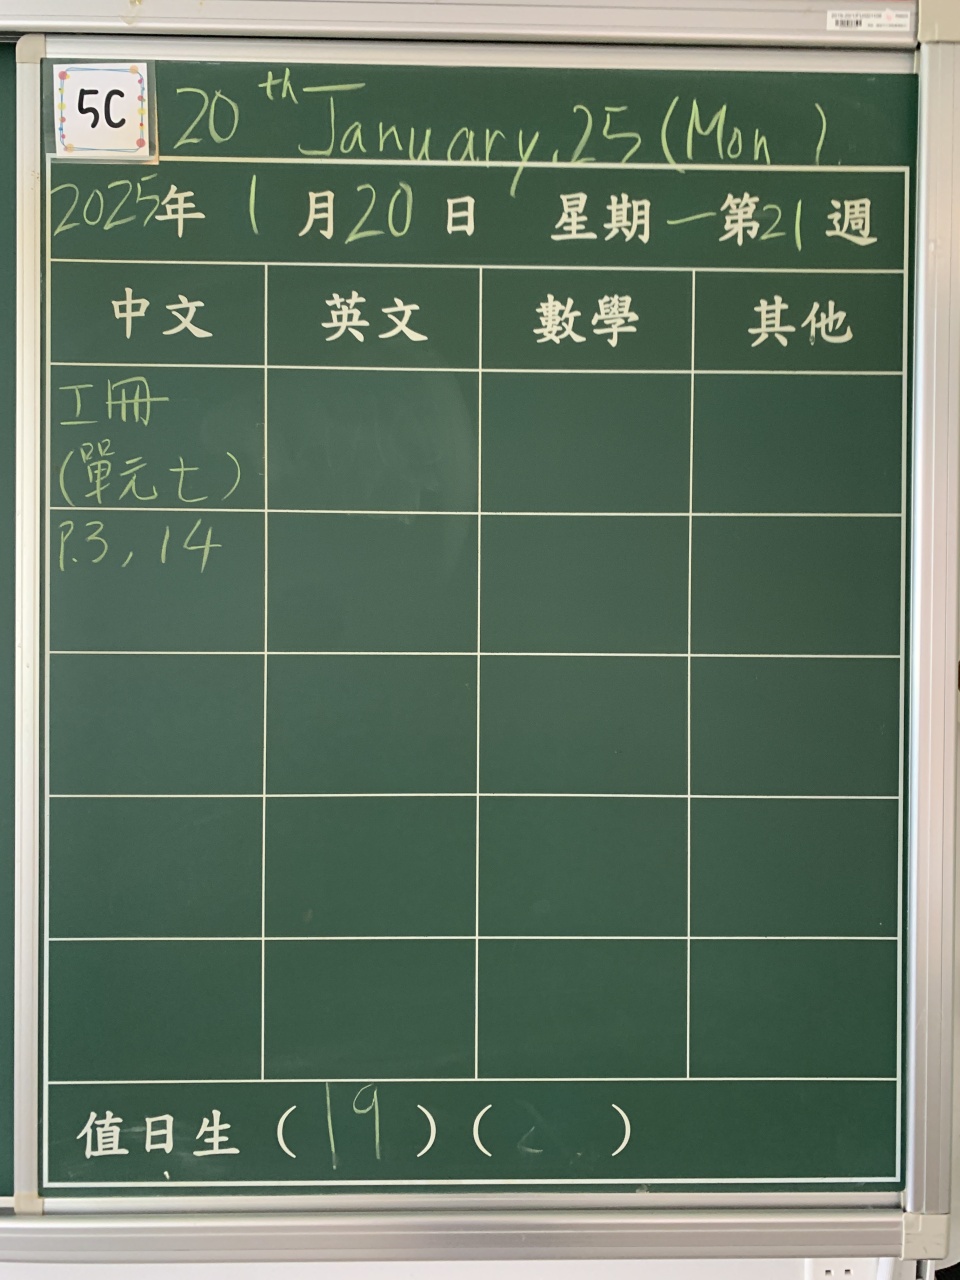 5C
20th January, 25 (Mon).
2025年 1 月 20 日 星期一 第 21 週
中文 英文 數學 其他
工冊
(單元七)
P.3, 14
值日生 ( 19 ) ( )